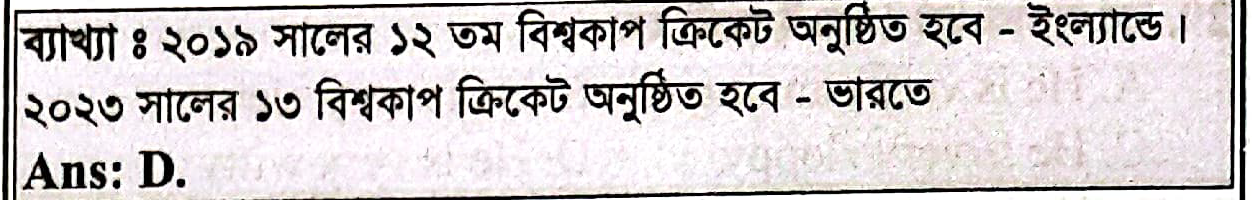 ব্যাখ্যা ঃ ২০১৯ সালের ১২ তম বিশ্বকাপ ক্রিকেট অনুষ্ঠিত হবে - ইংল্যান্ডে।
২০২৩ সালের ১৩ বিশ্বকাপ ক্রিকেট অনুষ্ঠিত হবে - ভারতে
Ans: D.